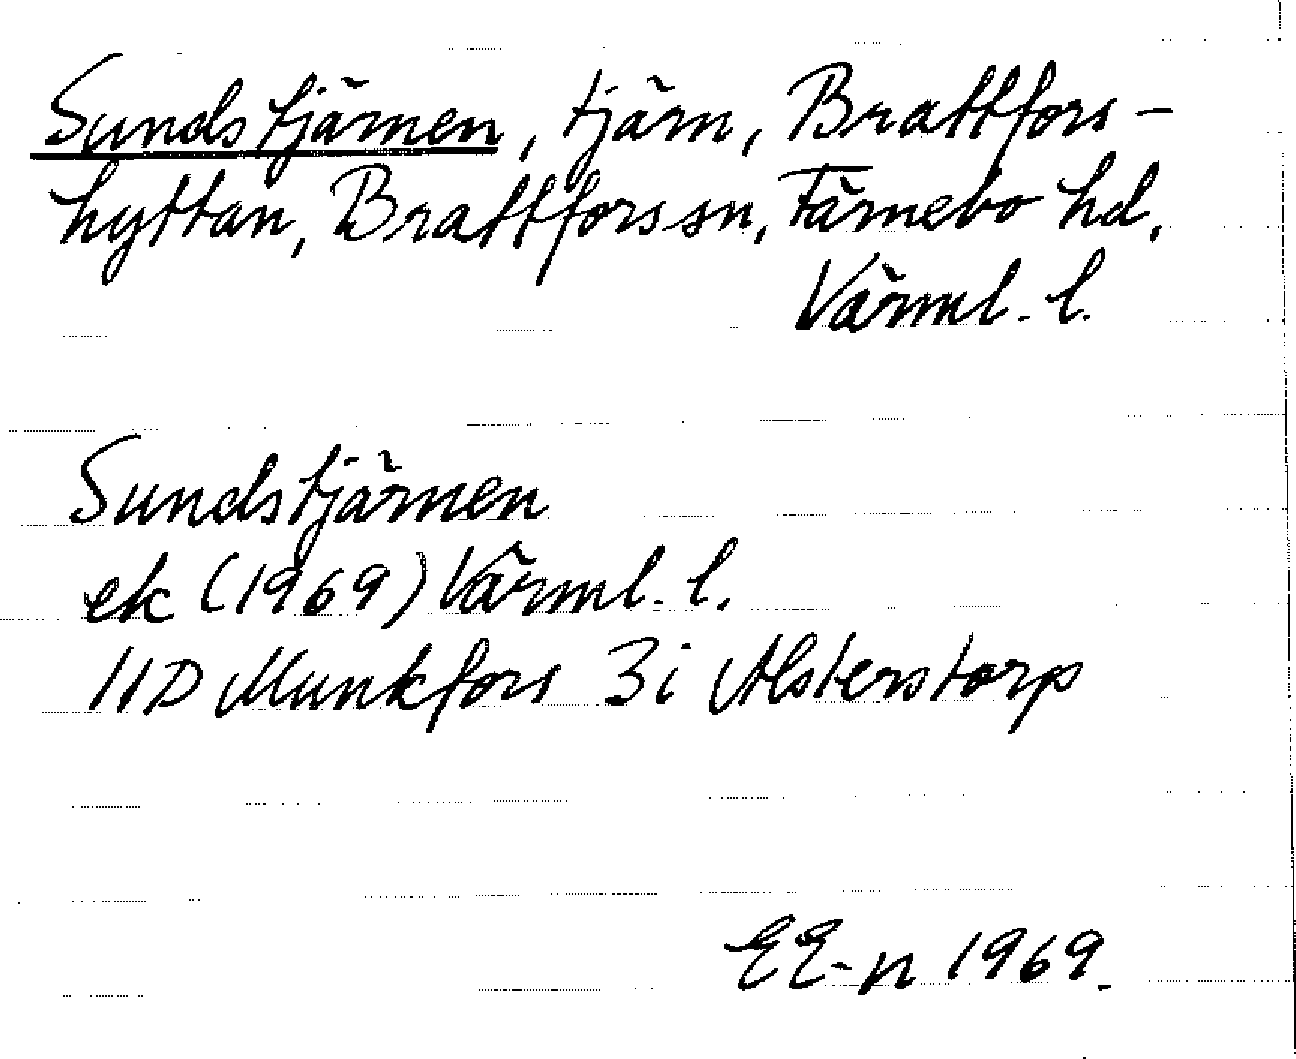 Sundstjärnen, tjärn, Brattfors-
hyttan, Brattfors sn, Färnebo hd,
Värml. l.
Sundstjärnen
ek (1969) Värml. l.
11D Munkfors 3i Alsterstorp
EE-n 1969.